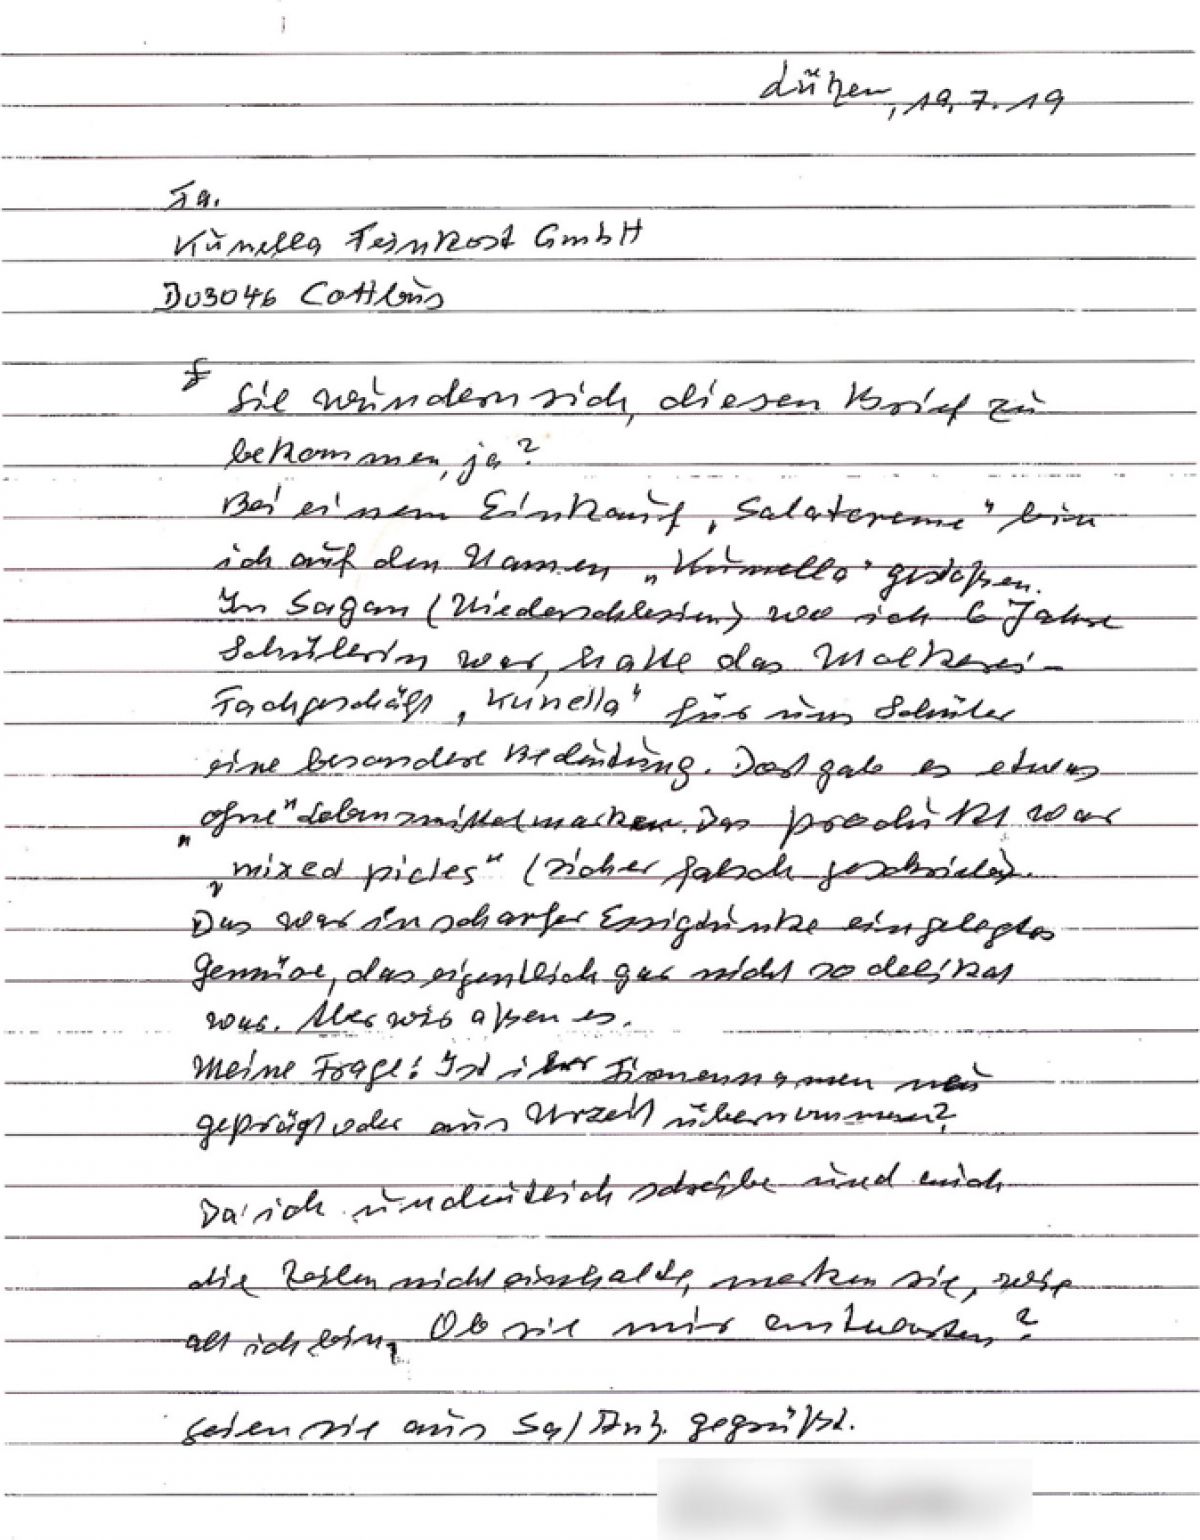 Lützen, 19.7.19
Fa.
Kunella Feinkost GmbH
D03046 Cottbus
Sie wundern sich, diesen Brief zu
bekommen, ja?
Bei einem Einkauf „Salatcreme" bin
ich auf den Namen „Kunella" gestoßen.
In Sagan (Niederschlesien) wo ich 6 Jahre
Schülerin war, hatte das Molkerei-
Fachgeschäft „Kunella" für uns Schüler
eine besondere Bedeutung. Dort gab es etwas
„ohne" Lebensmittelmarken. Das Produkt war
„mixed picles" (sicher falsch geschrieben).
Das war in scharfer Essigtunke eingelegtes
Gemüse, das eigentlich gar nicht so delikat
war. Aber wir aßen es.
Meine Frage: Ist ihr Firmennamen neu
geprägt oder aus Urzeit übernommen?
Da ich undeutlich schreibe und mich
die Zeilen nicht einhalte, merken sie, wie
alt ich bin. Ob sie mir antworten?
seien sie aus Sa/Anh. gegrüßt.